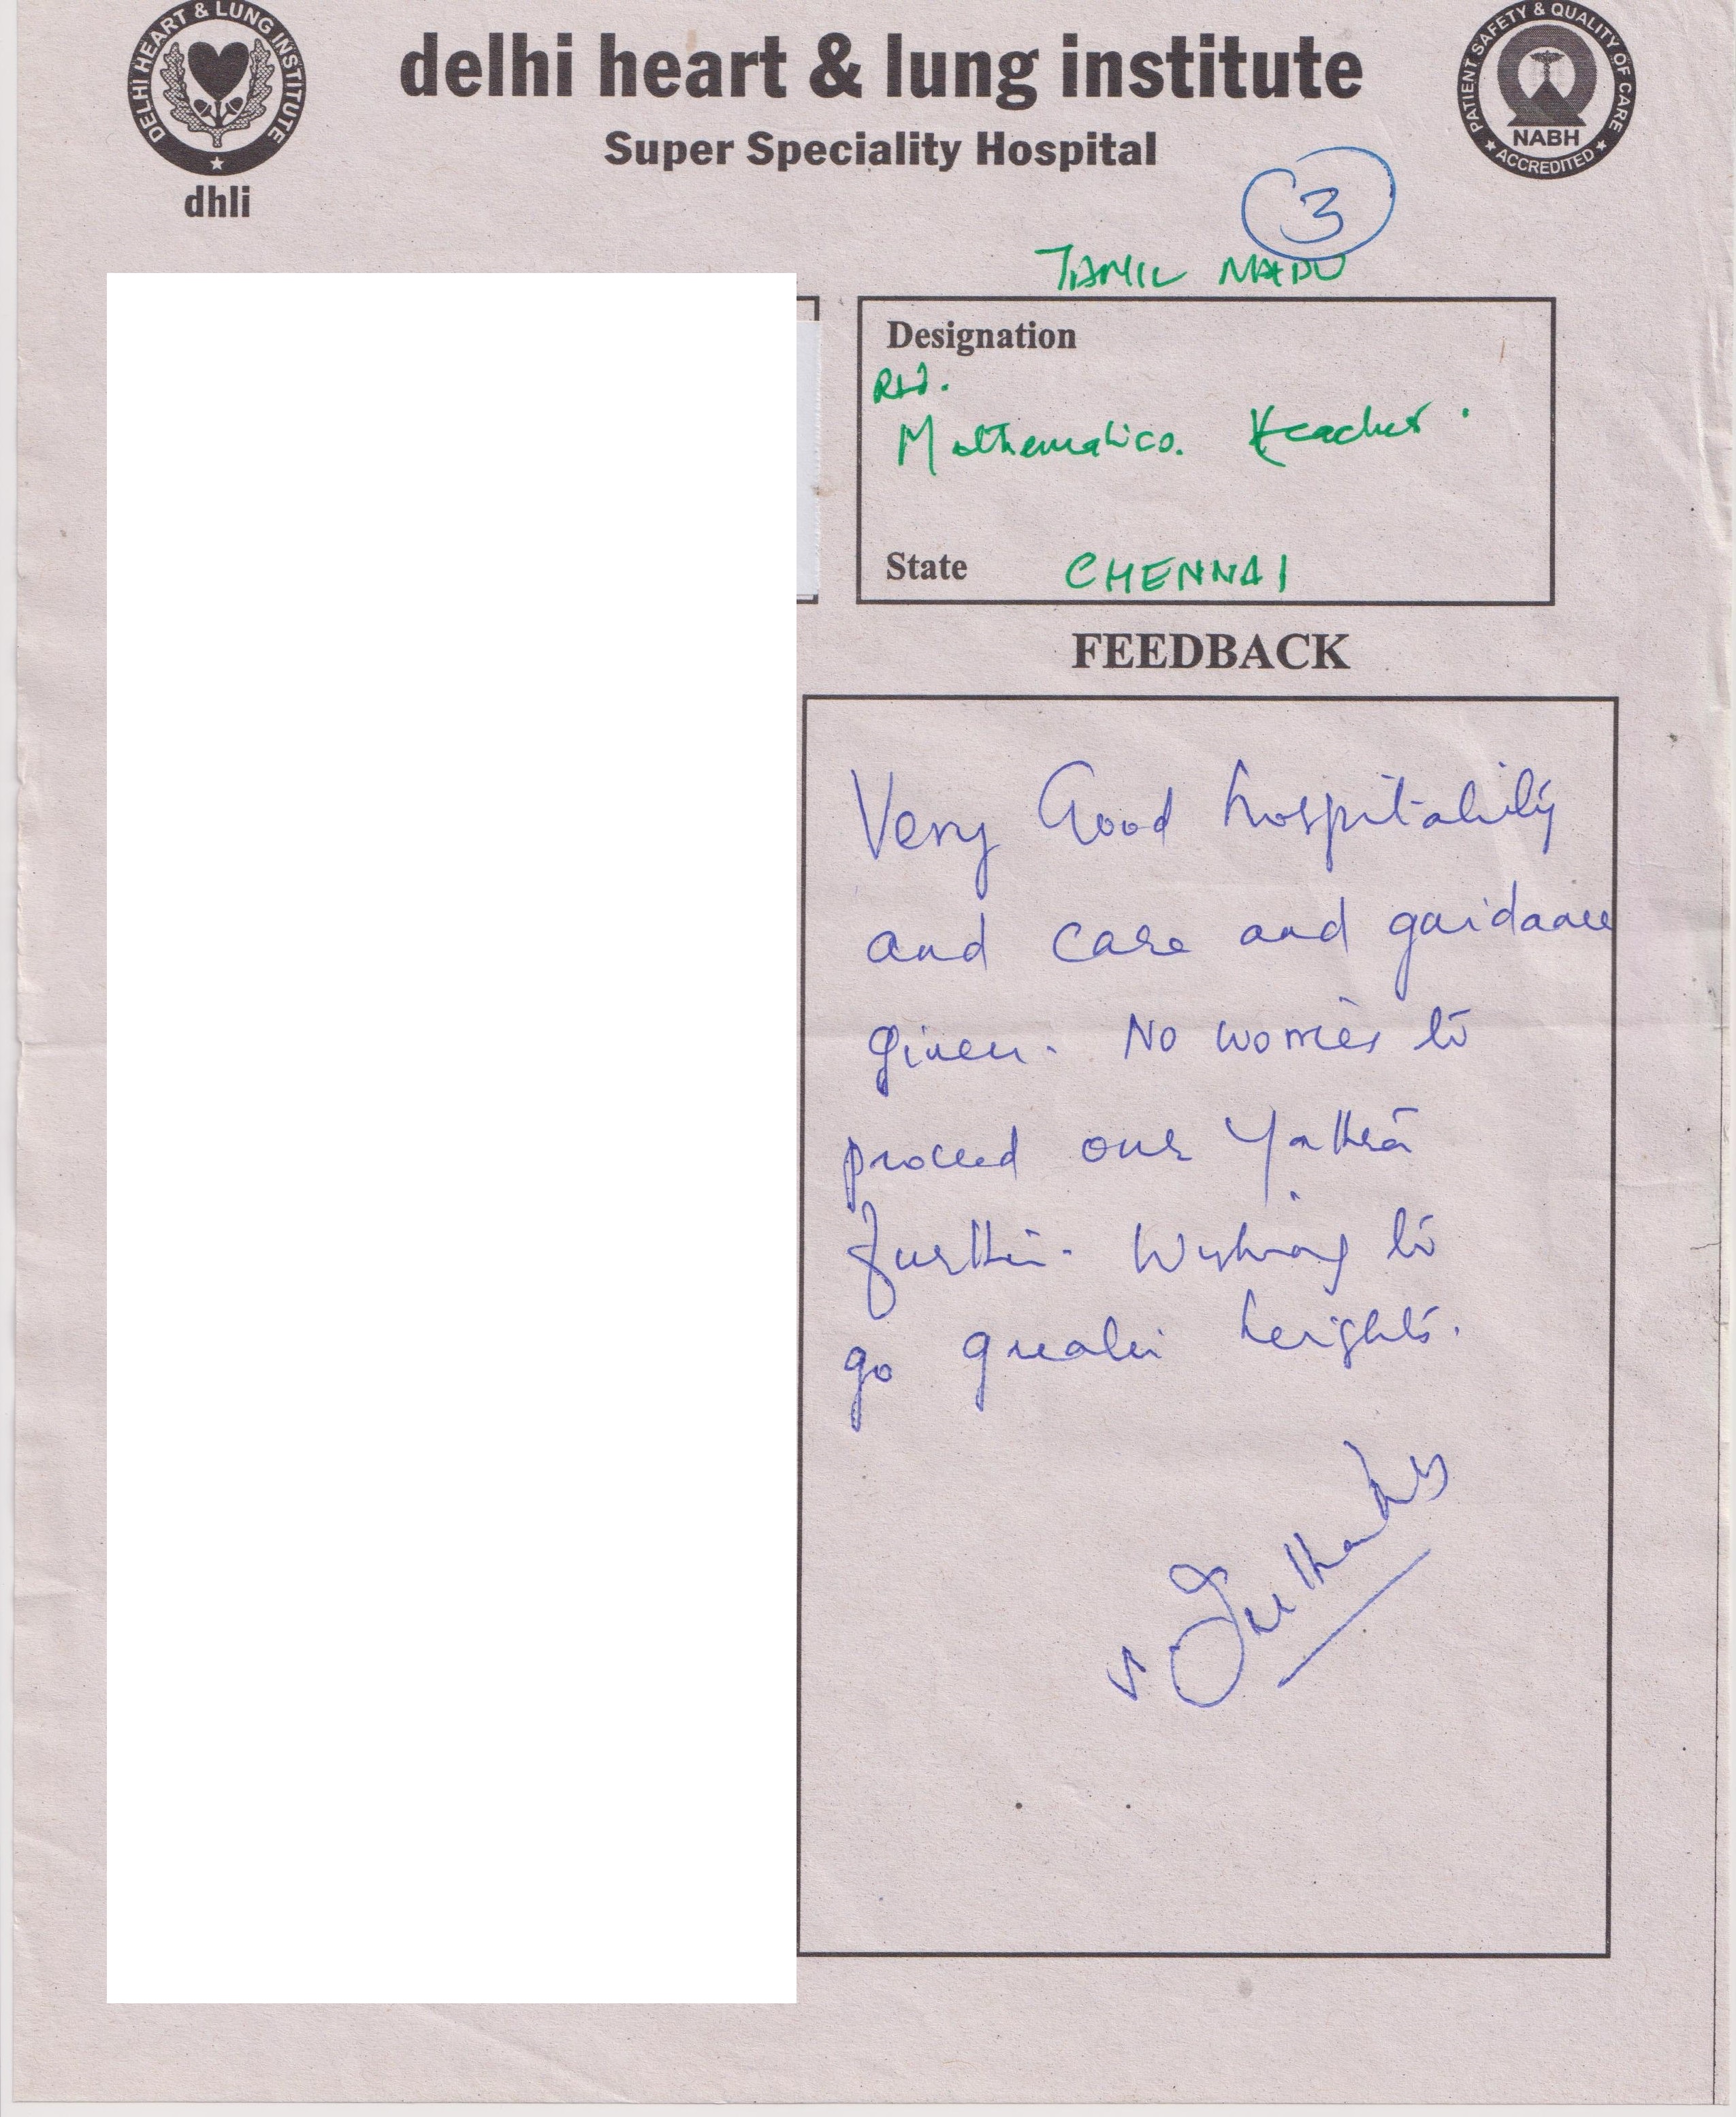 DELHI HEART & LUNG INSTITUTE
dhli
delhi heart & lung institute
Super Speciality Hospital
PATIENT SAFETY & QUALITY OF CARE
NABH
ACCREDITED
3
TAMIL NADU
Designation
Rtd.
Mathematics. teacher.
State CHENNAI
FEEDBACK
Very Good hospitality
and care and guidance
given. No worries to
proceed our Yathra
further. Wishing to
go greater heights.